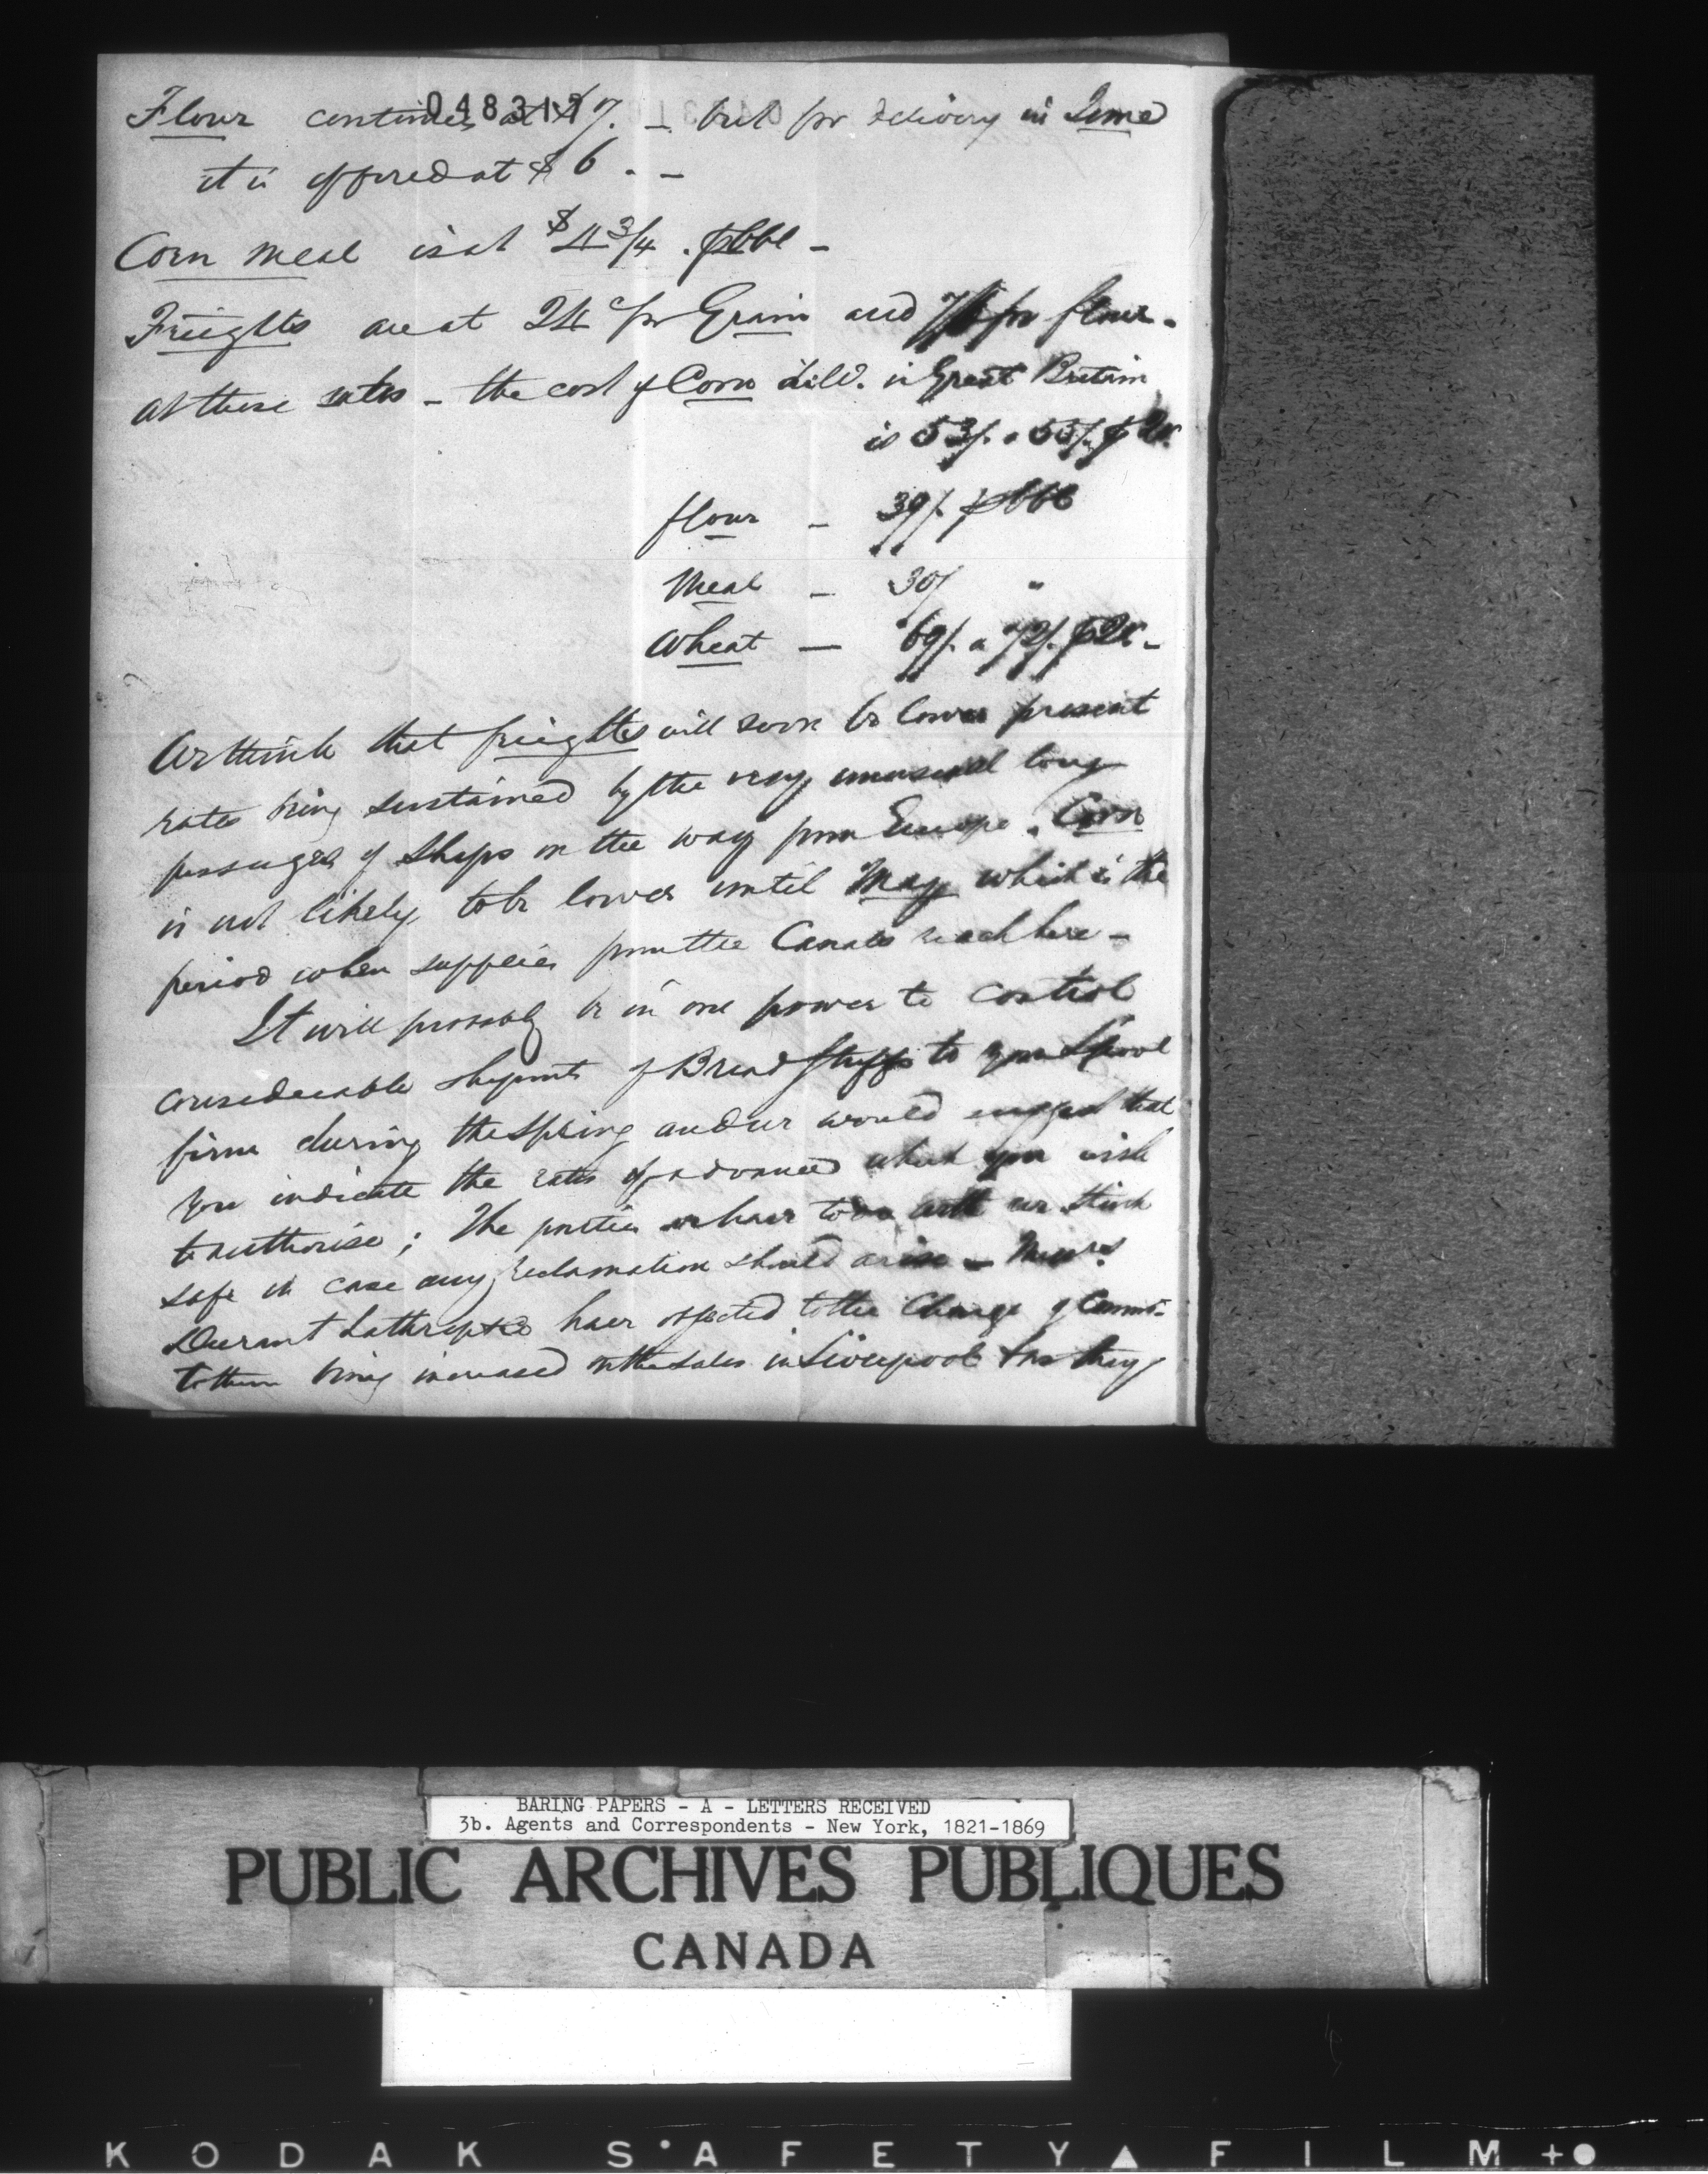 048317
Flour continues at $7. _ but for delivery in June
it is offered at $6. _
Corn Meal is at $4 3/4 . p bbl _
Freights are at 24 for Grain and for flour.
At these rates _ the cost of Corn deld. in Great Britain
is 53/. a 55/. p Qr.
flour _ 39/. p bbl
Meal _ 30/ "
Wheat _ 69/. a 72/. p Qr. _
We think that freights will soon be lower present
rates being sustained by the very unusual long
passages of Ships on the way from Europe. Corn
is not likely to be lower until May which is the
period when supplies from the Canals reach here _
It will probably be in our power to control
considerable shipments of Bread Stuffs to your Lpool
firm during the Spring and we would suggest that
you indicate the rates of advance which you wish
to authorise ; The parties we have to do with we think
safe in case any reclamation should arise _ Messrs
Durant Lathrop & Co have objected to the Charge of Commn.
to them being increased on the Sales in Liverpool & as they
BARING PAPERS - A - LETTERS RECEIVED
3b. Agents and Correspondents - New York, 1821-1869
PUBLIC ARCHIVES PUBLIQUES
CANADA
KODAK SAFETY FILM